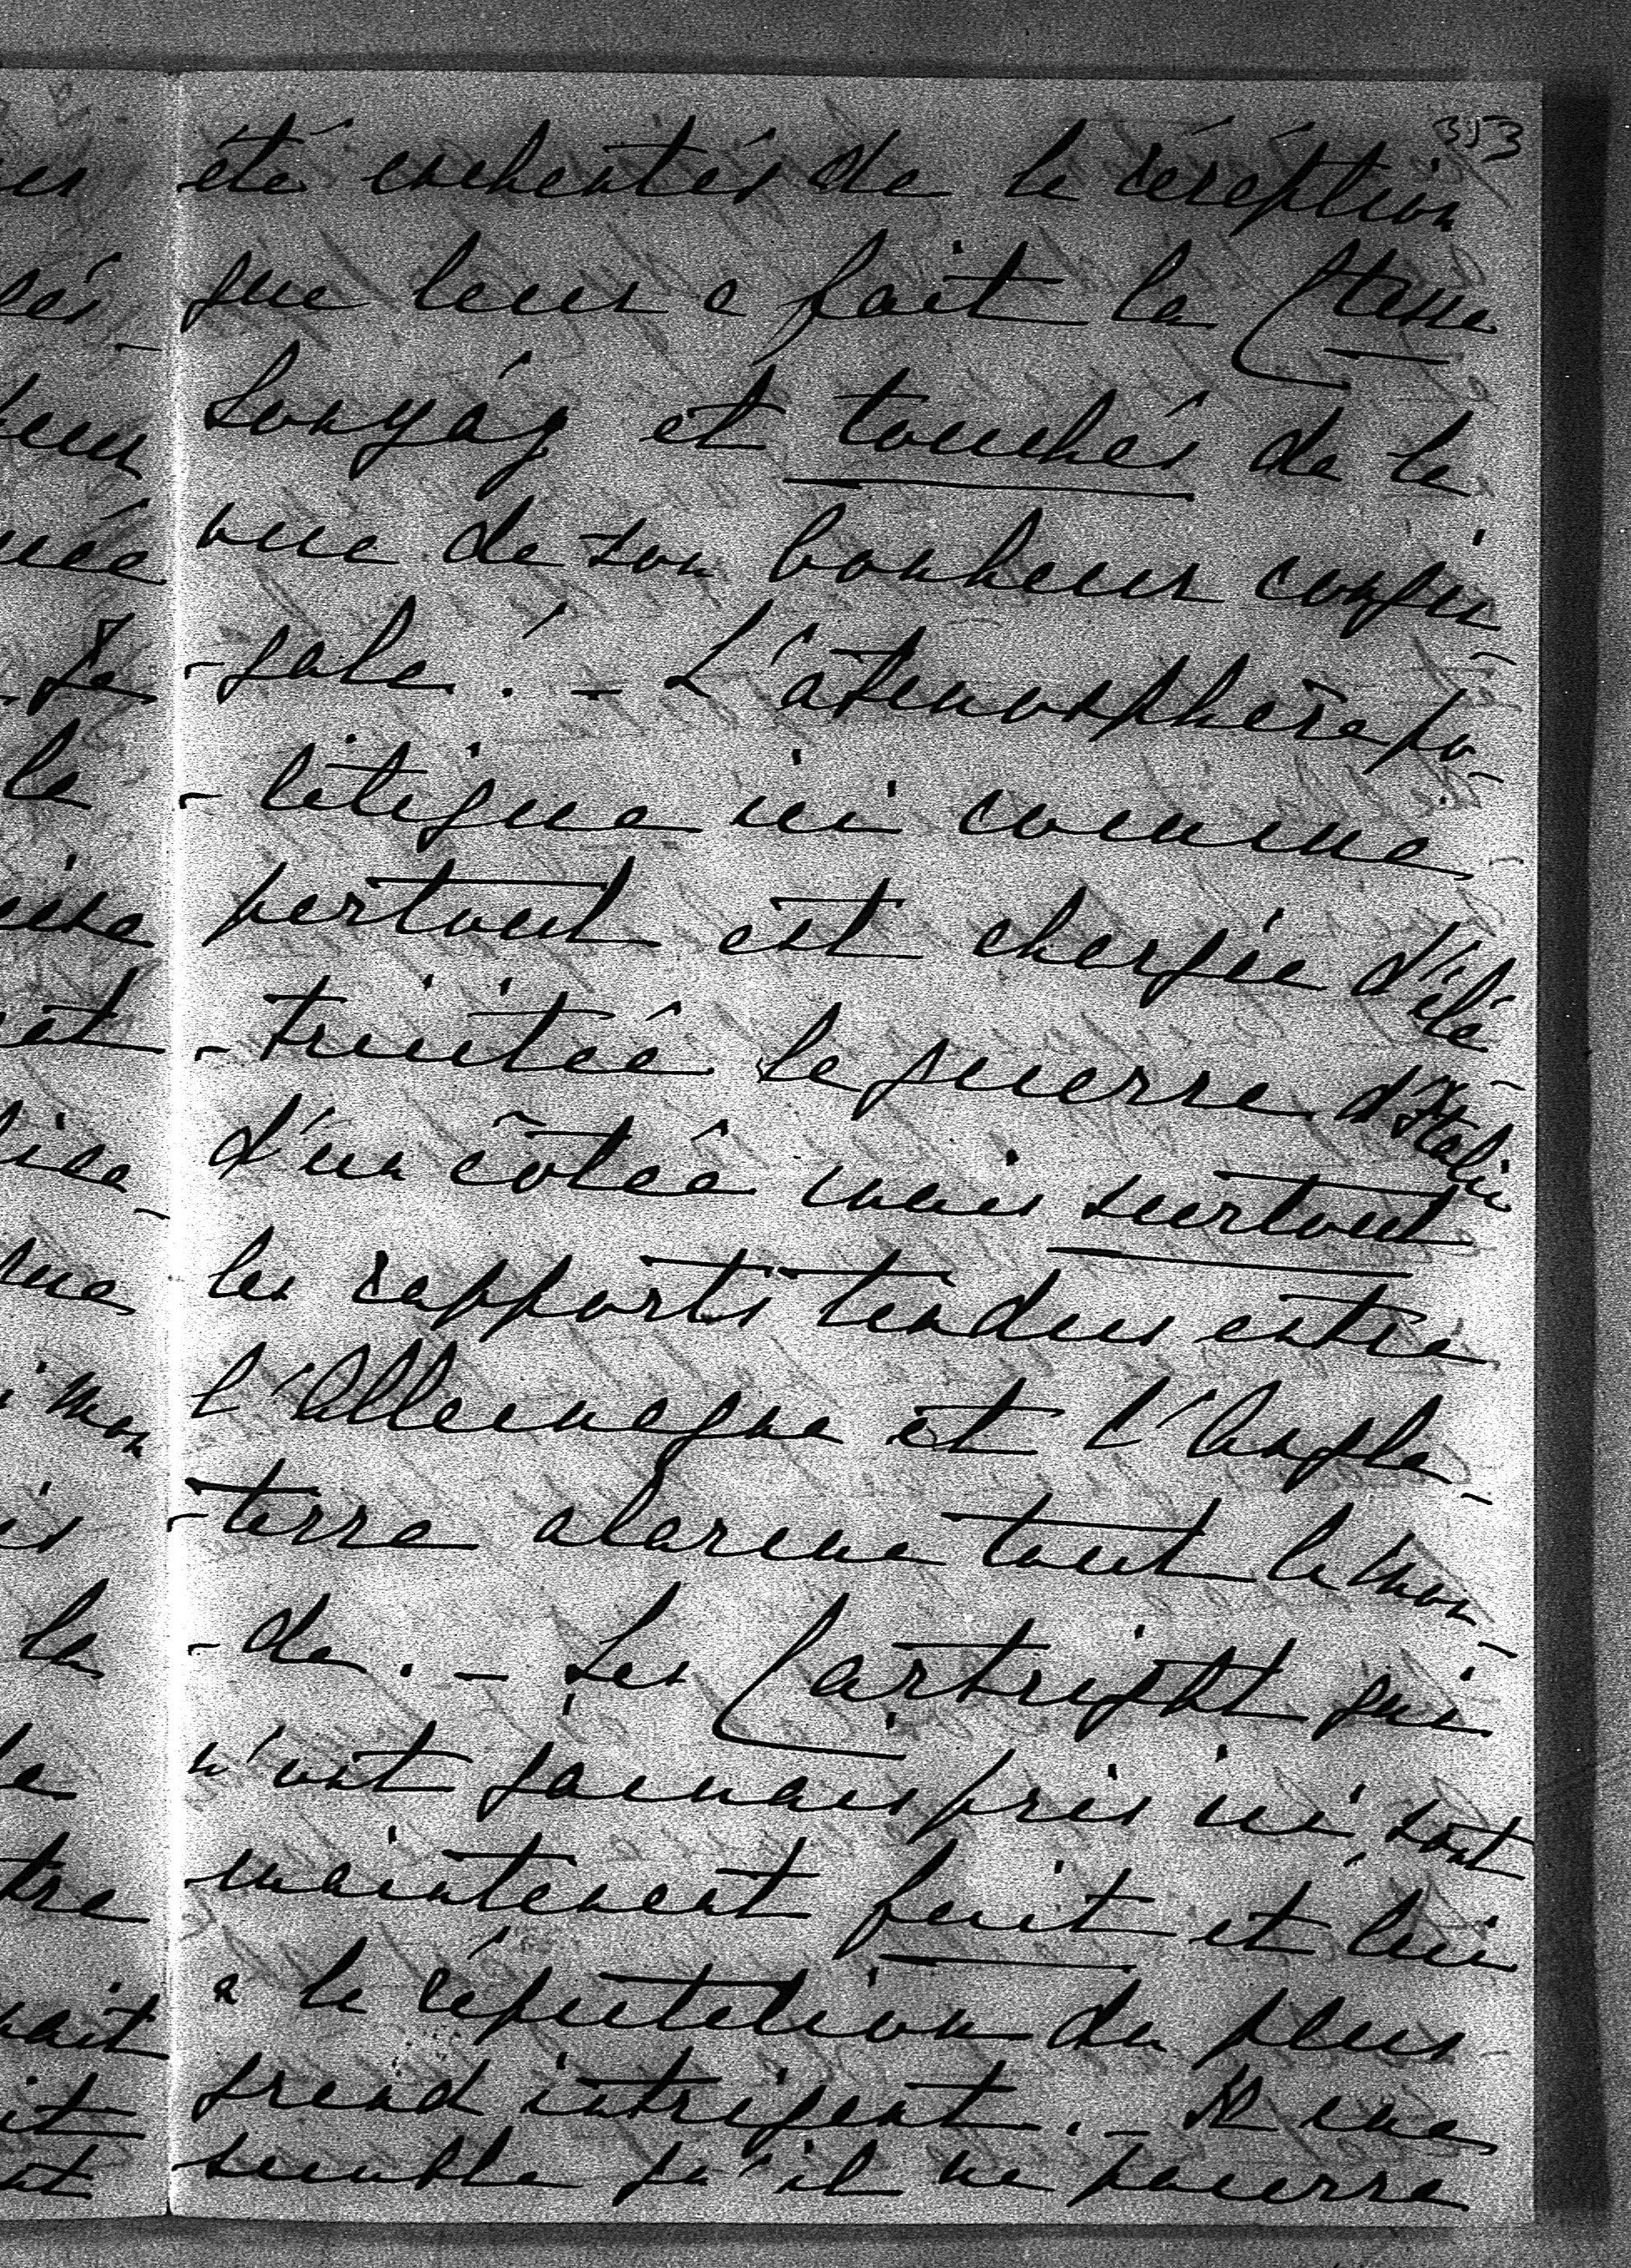 353
été enchantés de la réception
que leur a fait la Ctesse
Lonyáy et touchés de la
vue de son bonheur conju-
-gale. - L'atmosphère po-
-litique ici comme
partout est chargée d'élé-
-tricitée la guerre d'Italie
d'un côtée mais surtout
les rapports tendus entre
l'Allemagne et l'Angle-
-terre alarme tout le mon-
-de. - Les Cartright qui
n'ont jamais pris ici sont
maintenant fuit et lui
a la réputation du plus
grand intrigant. - Il me
semble qu'il ne pourra